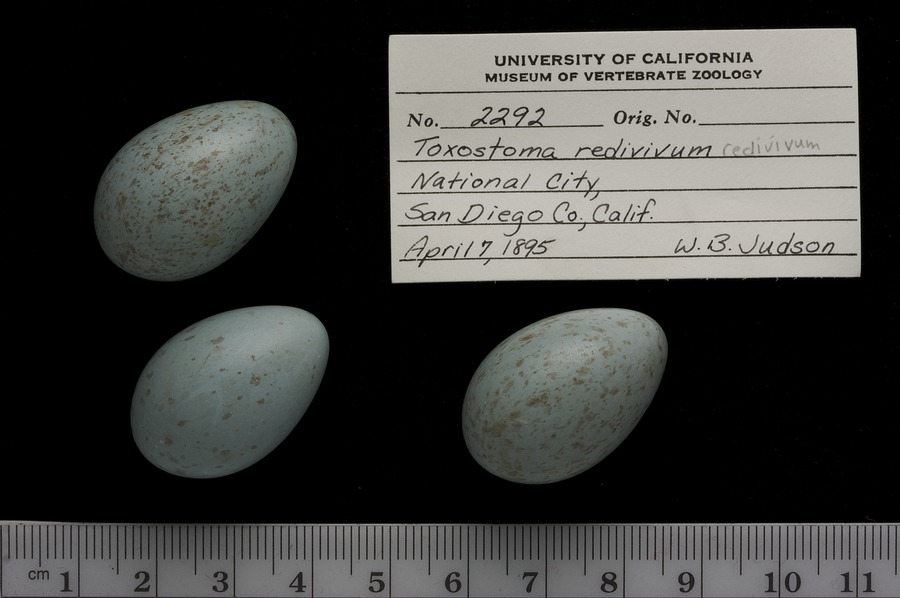 UNIVERSITY OF CALIFORNIA
MUSEUM OF VERTEBRATE ZOOLOGY
No. 2292 Orig. No.
Toxostoma redivivum redivivum
National City,
San Diego Co., Calif.
April 7, 1895 W. B. Judson
cm 1 2 3 4 5 6 7 8 9 10 11